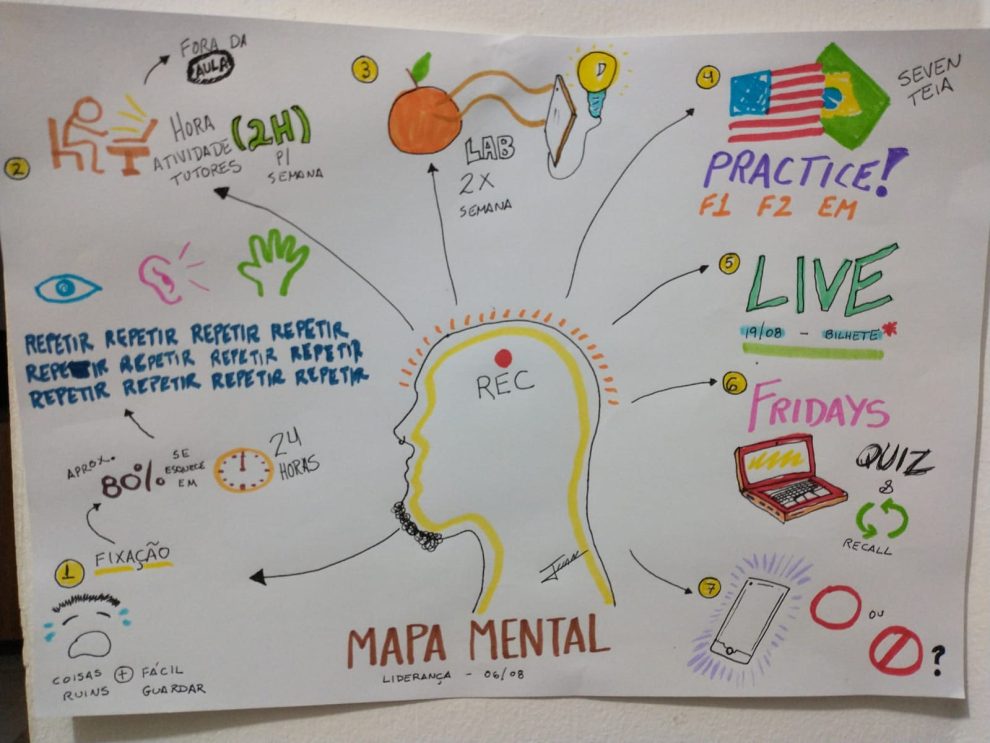 2
FORA DA
AULA
HORA
ATIVIDADE
TUTORES
(2H)
P/
SEMANA
3
D
LAB
2X
SEMANA
4
SEVEN
TEIA
PRACTICE!
F1 F2 EM
REPETIR REPETIR REPETIR REPETIR
REPETIR REPETIR REPETIR REPETIR
REPETIR REPETIR REPETIR REPETIR
5
LIVE
19/08 - BILHETE*
REC
6
FRIDAYS
QUIZ
&
RECALL
APROX.
80%
SE
ESQUECE
EM
24
HORAS
1
FIXAÇÃO
COISAS
RUINS
+
FÁCIL
GUARDAR
MAPA MENTAL
LIDERANÇA - 06/08
7
OU
?